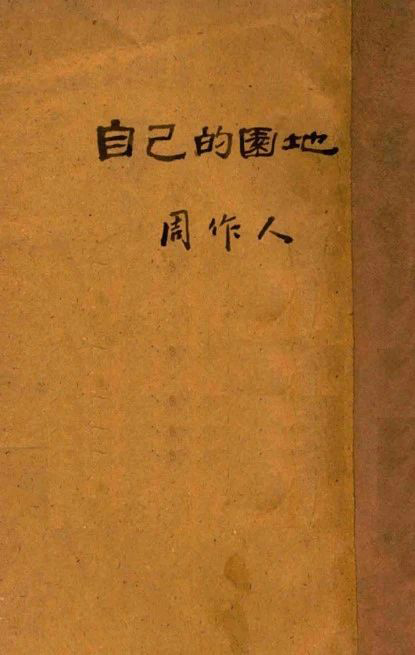 自己的園地
周作人